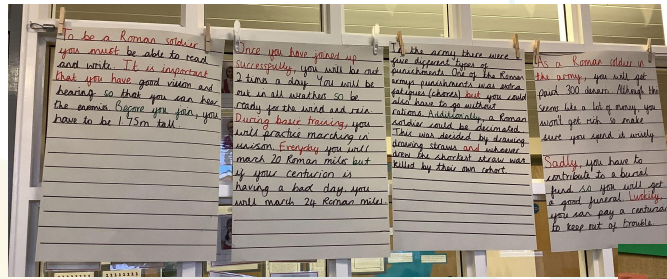 To be a Roman soldier
you must be able to read
and write. It is important
that you have good vision and
hearing so that you can hear
the enemies. Before you join, you
have to be 1.75m tall.
Once you have joined up
successfully, you will be out
2 times a day. You will be
out in all weather so be
ready for the wind and rain.
During basic training, you
will practice marching in
unison. Everyday you will
march 20 Roman miles but
if your centurion is
having a bad day, you
will march 24 Roman miles.
In the army there were
five different types of
punishments. One of the Roman
armys punishments was extra
fatigues (chores) but you could
also have to go without
rations. Additionally, a Roman
soldier could be decimated.
This was decided by drawing
drawing straws and whoever
drew the shortest straw was
killed by their own cohort.
As a Roman soldier in
the army, you will get
paid 300 denarii. Although this
seems like a lot of money, you
won't get rich so make
sure you spend it wisely.
Sadly, you have to
contribute to a burial
fund so you will get
a good funeral. Luckily,
you can pay a centurion
to keep out of trouble.